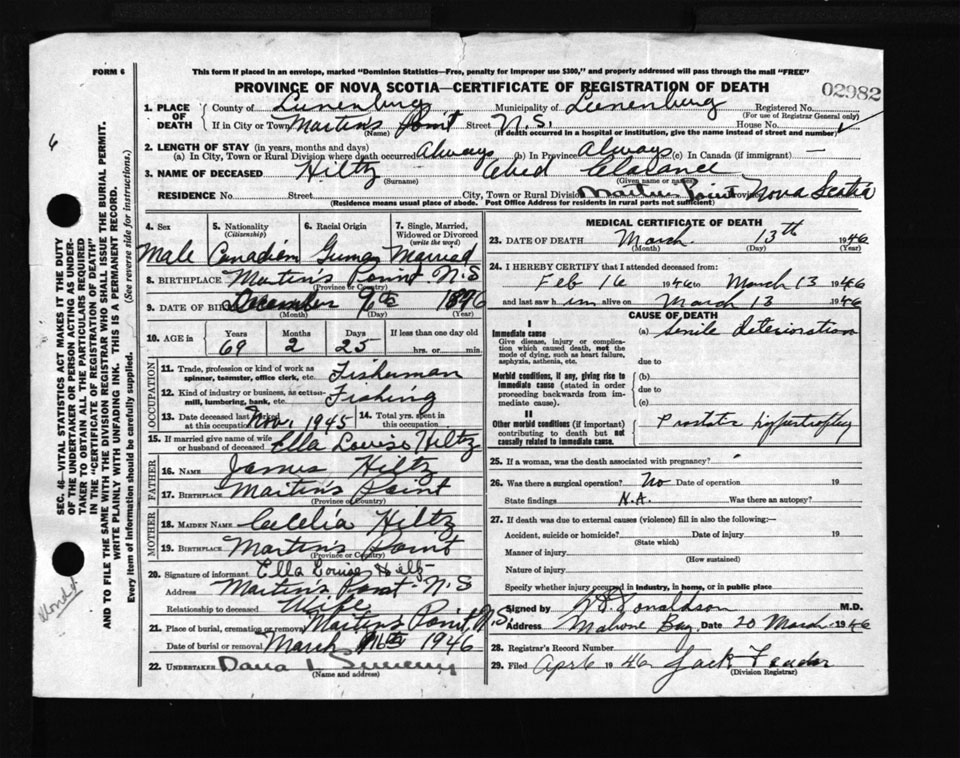 FORM 6
This form if placed in an envelope, marked "Dominion Statistics—Free, penalty for improper use $300," and properly addressed will pass through the mail "FREE"
PROVINCE OF NOVA SCOTIA—CERTIFICATE OF REGISTRATION OF DEATH
02982
1. PLACE OF DEATH
County of Lunenburg Municipality of Lunenburg Registered No.
(For use of Registrar General only)
If in City or Town Martin's Point Street N.S. House No.
(Name) (If death occurred in a hospital or institution, give the name instead of street and number)
2. LENGTH OF STAY (in years, months and days)
(a) In City, Town or Rural Division where death occurred Always (b) In Province Always (c) In Canada (if immigrant) —
3. NAME OF DECEASED Hiltz Obed
(Surname) (Given name or names)
RESIDENCE No. Street City, Town or Rural Division Martin's Point Province Nova Scotia
(Residence means usual place of abode. Post Office Address for residents in rural parts not sufficient)
4. Sex
Male
5. Nationality (Citizenship)
Canadian
6. Racial Origin
7. Single, Married, Widowed or Divorced (write the word)
Married
8. BIRTHPLACE Martin's Point N.S
(Province or Country)
9. DATE OF BIRTH December 1876
(Month) (Day) (Year)
10. AGE in
Years Months Days If less than one day old
69 2 25 hrs. or min.
OCCUPATION
11. Trade, profession or kind of work as spinner, teamster, office clerk, etc. Fisherman
12. Kind of industry or business, as cotton-mill, lumbering, bank, etc. Fishing
13. Date deceased last worked at this occupation Nov. 1945 14. Total yrs. spent in this occupation
15. If married give name of wife or husband of deceased Ella Louise Hiltz
FATHER
16. NAME James Hiltz
17. BIRTHPLACE Martin's Point
(Province or Country)
MOTHER
18. MAIDEN NAME Cecelia Hiltz
19. BIRTHPLACE Martin's Point
(Province or Country)
20. Signature of informant Ella Louise Hiltz
Address Martin's Point N.S
Relationship to deceased Wife
21. Place of burial, cremation or removal Martin's Point N.S.
Date of burial or removal March 1946
22. UNDERTAKER
(Name and address)
MEDICAL CERTIFICATE OF DEATH
23. DATE OF DEATH March 13th 1946
(Month) (Day) (Year)
24. I HEREBY CERTIFY that I attended deceased from:
Feb 16 1946 to March 13 1946
and last saw him alive on March 13 1946
CAUSE OF DEATH
I
Immediate cause
Give disease, injury or complication which caused death, not the mode of dying, such as heart failure, asphyxia, asthenia, etc.
(a) Senile deterioration
due to
Morbid conditions, if any, giving rise to immediate cause (stated in order proceeding backwards from immediate cause).
(b)
due to
(c)
II
Other morbid conditions (if important) contributing to death but not causally related to immediate cause.
Prostatic hypertrophy
25. If a woman, was the death associated with pregnancy?
26. Was there a surgical operation? No Date of operation 19
State findings N.A. Was there an autopsy?
27. If death was due to external causes (violence) fill in also the following:—
Accident, suicide or homicide? Date of injury 19
(State which)
Manner of injury
(How sustained)
Nature of injury
Specify whether injury occurred in industry, in home, or in public place
Signed by Donaldson M.D.
Address Mahone Bay. Date 20 March 1946
28. Registrar's Record Number
29. Filed April 6 1946 Jack
(Division Registrar)
SEC. 46—VITAL STATISTICS ACT MAKES IT THE DUTY OF THE UNDERTAKER OR PERSON ACTING AS UNDERTAKER TO OBTAIN ALL THE PARTICULARS REQUIRED IN THE "CERTIFICATE OF REGISTRATION OF DEATH"
AND TO FILE THE SAME WITH THE DIVISION REGISTRAR WHO SHALL ISSUE THE BURIAL PERMIT.
WRITE PLAINLY WITH UNFADING INK. THIS IS A PERMANENT RECORD.
Every item of information should be carefully supplied. (See reverse side for instructions.)